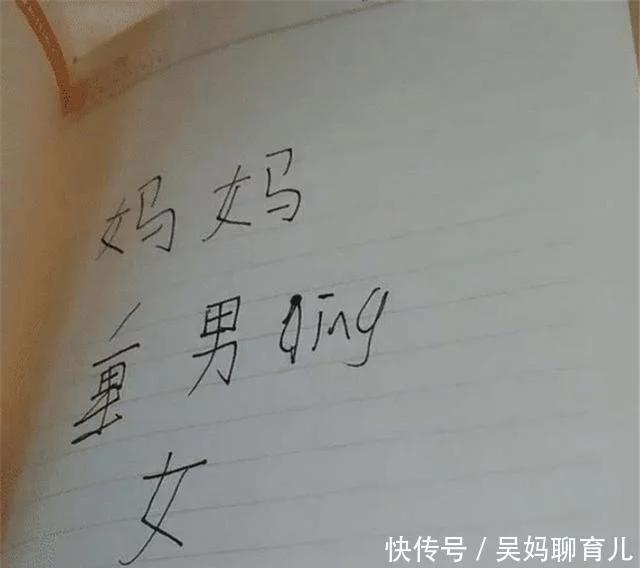 妈妈
重男qing
女
快传号/吴妈聊育儿